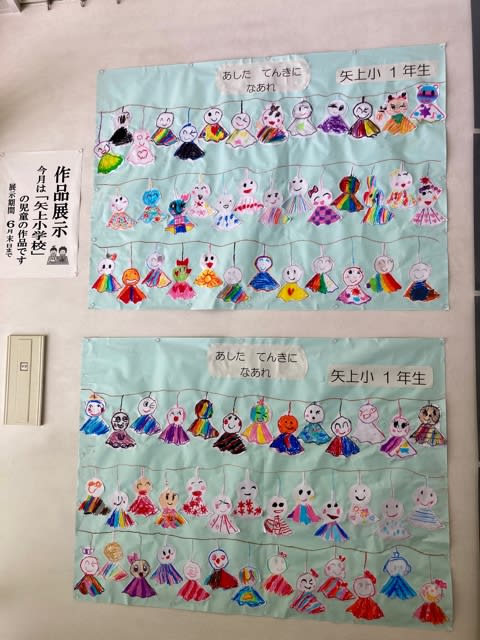 作品展示
今月は「矢上小学校」
の児童の作品です
展示期間 6月末日まで
あした てんきに
なあれ
矢上小 1年生
あした てんきに
なあれ
矢上小 1年生